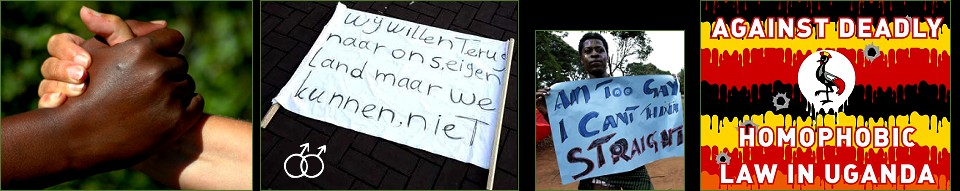 wij willen Terug
naar ons eigen
Land maar we
kunnen niet
AM Too GAY
I CANT
STRAIGHT
AGAINST DEADLY
HOMOPHOBIC
LAW IN UGANDA